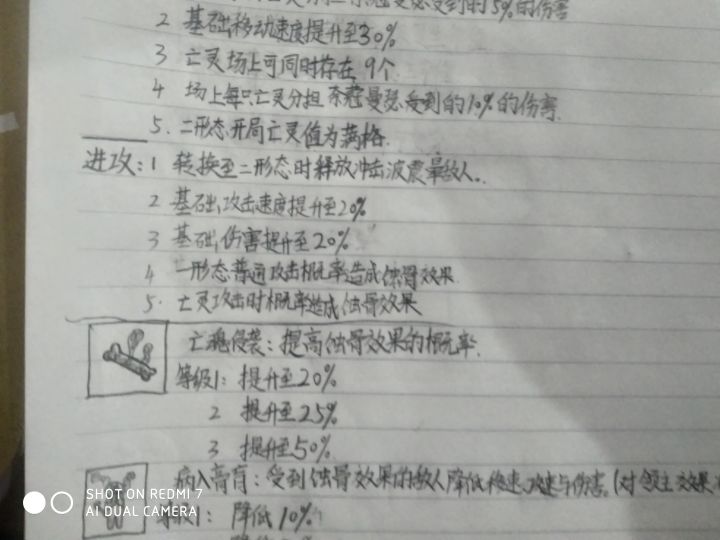 受到的5%的伤害
2 基础移动速度提升至30%
3 亡灵场上可同时存在9个
4 场上每只亡灵分担 曼瑟受到的10%的伤害.
5. 二形态开局亡灵值为满格.
进攻:1 转换至二形态时释放冲击波震晕敌人.
2 基础攻击速度提升至20%
3 基础伤害提升至20%
4 一形态普通攻击概率造成蚀骨效果.
5. 亡灵攻击时概率造成蚀骨效果
亡魂侵袭:提高蚀骨效果的概率.
等级1: 提升至20%
2 提升至25%
3 提升至50%
病入膏肓:受到蚀骨效果的敌人降低移速、攻速与伤害。(对领主效果
等级1: 降低10%
SHOT ON REDMI 7
AI DUAL CAMERA